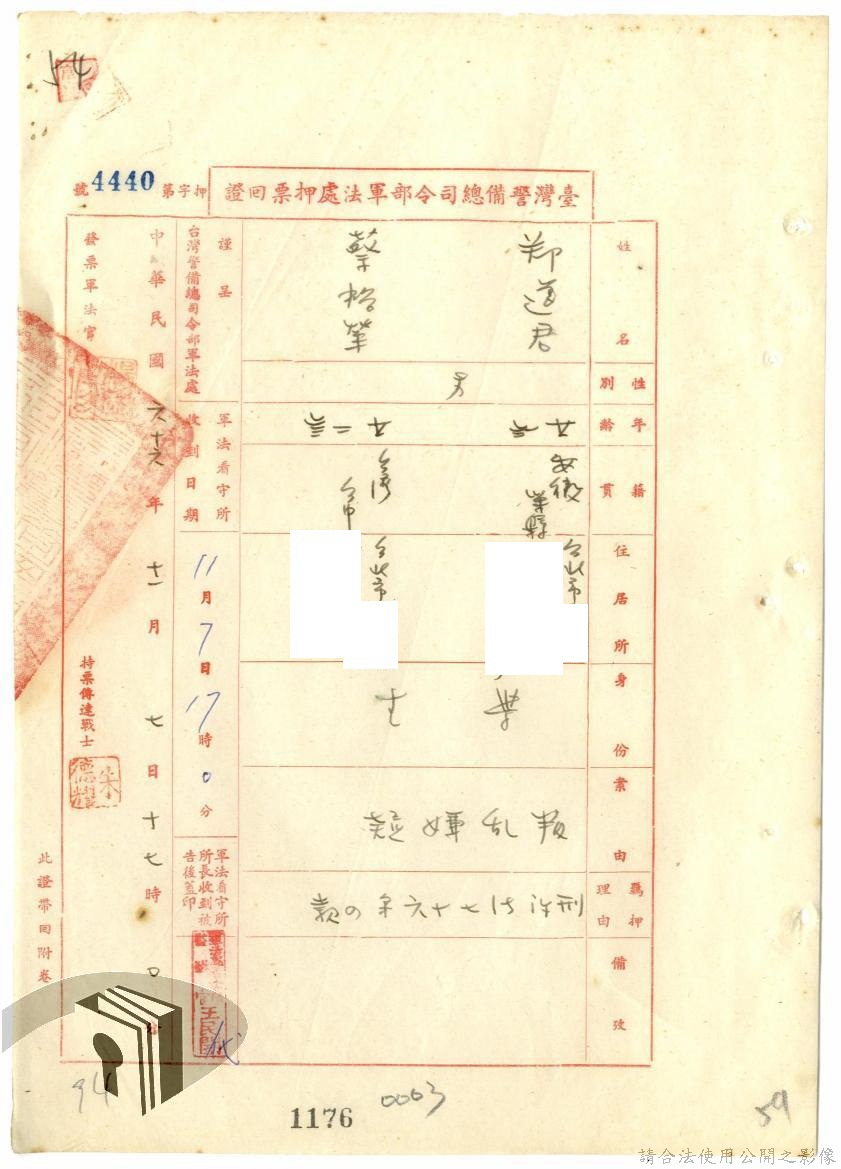 54
臺灣警備總司令部軍法處押票回證
押字第4440號
姓名
鄭道君
蔡裕榮
性別
男
年齡
廿三
廿二
籍貫
安徽
台灣
台中
住居所
台北市
台北市
身份
學生
案由
叛乱嫌疑
羈押理由
刑訴法七十六条四款
備攷
謹呈
台灣警備總司令部軍法處
軍法看守所收到日期
11月7日17時0分
軍法看守所所長收到被告後蓋印
代
中華民國六十六年十一月七日十七時0分
發票軍法官
持票傳達戰士
朱德耀
此證帶回附卷
94
1176
0063
59
請合法使用公開之影像